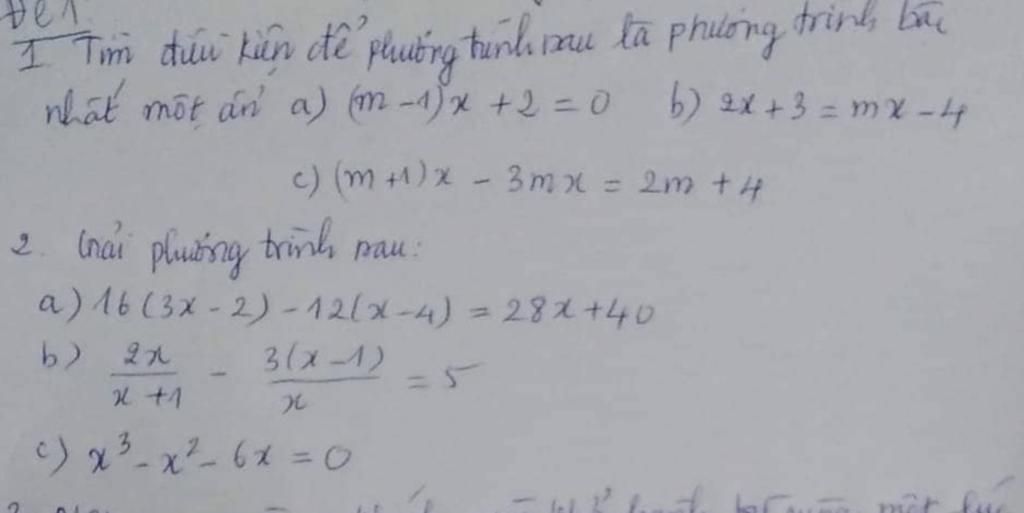 Đề 1
1 Tìm điều kiện để phương trình sau là phương trình bậc
nhất một ẩn a) (m -1)x + 2 = 0 b) 2x + 3 = mx - 4
c) (m +1)x - 3mx = 2m + 4
2. Giải phương trình sau:
a) 16(3x - 2) - 12(x - 4) = 28x + 40
b) \frac{2x}{x+1} - \frac{3(x-1)}{x} = 5
c) x³ - x² - 6x = 0
một